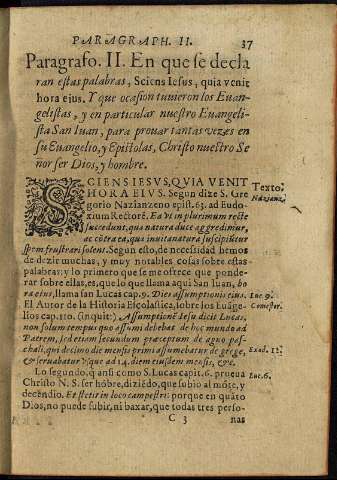 PARAGRAPH. II. 37
Paragrafo. II. En que se decla
ran estas palabras, Sciens Iesus, quia venit
hora eius. Y que ocasion tuuieron los Euan-
gelistas, y en particular nuestro Euangeli-
sta San Iuan, para prouar tantas vezes en
su Euangelio, y Epistolas, Christo nuestro Se
ñor ser Dios, y hombre.
SCIENS IESVS, QVIA VENIT Texto.
HORA EIVS. Segun dize S. Gre Nazianz.
gorio Nazianzeno epist. 63. ad Eudo-
xium Rectorē. Ea vt in plurimum recte
succedunt, quæ natura duce aggredimur,
ac cōtra ea, quæ inuita natura suscipiūtur
spem frustrari solent. Segun esto, de necessidad hemos
de dezir muchas, y muy notables cosas sobre estas
palabras: y lo primero que se me ofrece que ponde-
rar sobre ellas, es, que lo que llama aqui San Iuan, ho
ra eius, llama san Lucas cap. 9. Dies assumptionis eius. Luc. 9.
El Autor de la Historia Escolastica, sobre los Euāge- Comestor.
lios cap. 110. (inquit:) Assumptionē Iesu dicit Lucas,
non solum tempus quo assumi debebat de hoc mundo ad
Patrem, sed etiam secundum præceptum de agno pas-
chali, qui decimo die mensis primi assumebatur de grege, Exod. 12.
& seruabatur vsque ad 14. diem eiusdem mensis, &c.
Lo segundo, q̄ ansi como S. Lucas capit. 6. prueua Luc. 6.
Christo N. S. ser hōbre, diziēdo, que subio al mōte, y
decendio. Et stetit in loco campestri: porque en quāto
Dios, no puede subir, ni baxar, que todas tres perso-
C 3 nas